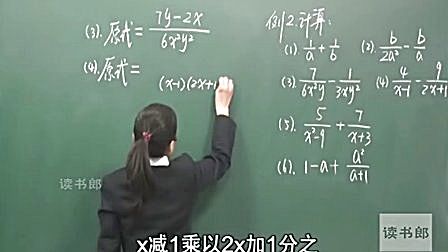 (3). 原式 = \frac{7y-2x}{6x^2y^2}
(4). 原式 =
(x-1)(2x+1
例2. 计算:
(1). \frac{1}{a}+\frac{1}{b} (2). \frac{b}{2a^2}-\frac{b}{a}
(3). \frac{7}{6x^2y}-\frac{1}{3xy^2} (4) \frac{4}{x-1}-\frac{9}{2x+1}
(5). \frac{5}{x^2-9}+\frac{7}{x+3}
(6). 1-a+\frac{a^2}{a+1}
读书郎
读书郎
x减1乘以2x加1分之